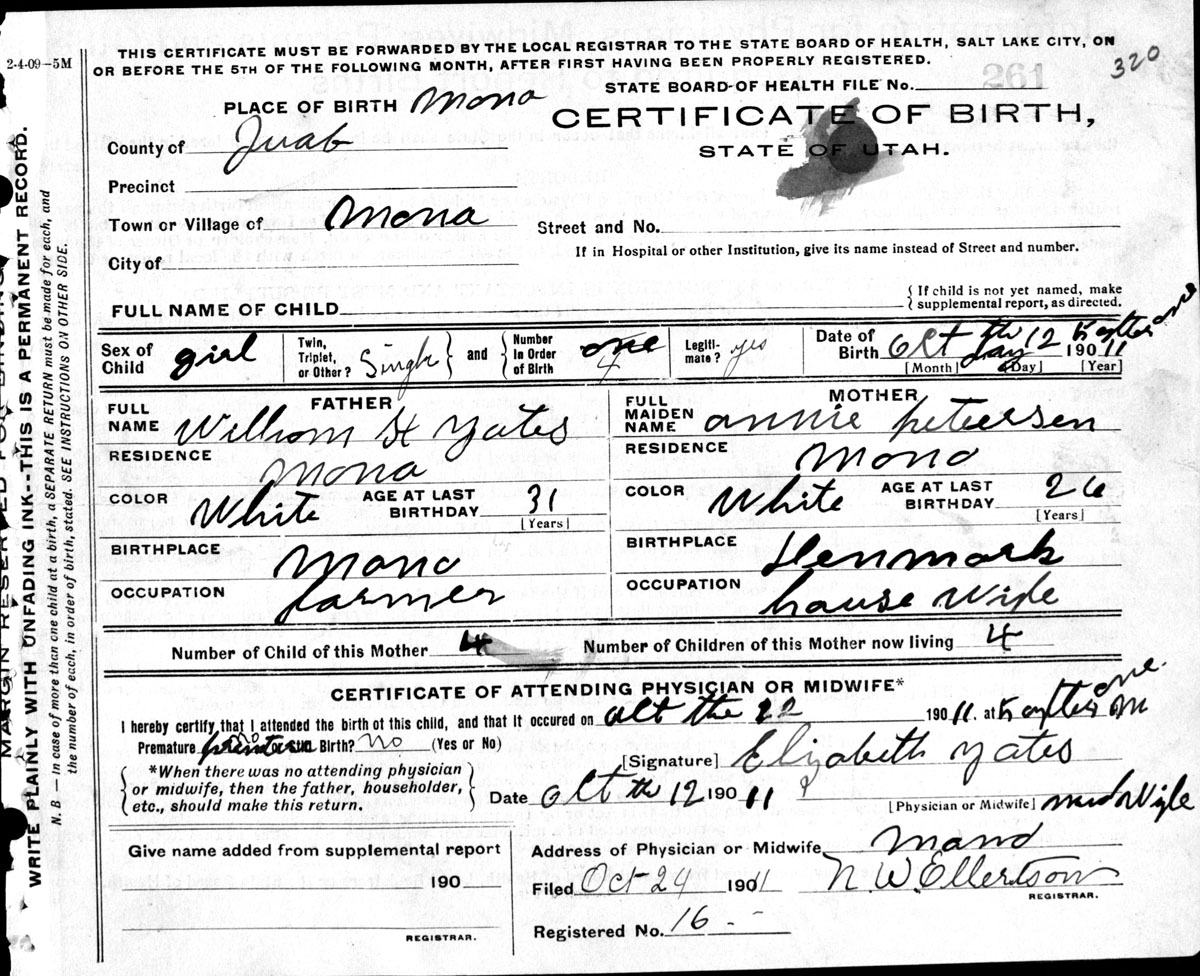 THIS CERTIFICATE MUST BE FORWARDED BY THE LOCAL REGISTRAR TO THE STATE BOARD OF HEALTH, SALT LAKE CITY, ON
2-4-09-5M
OR BEFORE THE 5TH OF THE FOLLOWING MONTH, AFTER FIRST HAVING BEEN PROPERLY REGISTERED.
320
261
STATE BOARD OF HEALTH FILE No.
PLACE OF BIRTH Mona
CERTIFICATE OF BIRTH,
County of Juab
STATE OF UTAH.
Precinct
Town or Village of Mona
Street and No.
If in Hospital or other Institution, give its name instead of Street and number.
City of
FULL NAME OF CHILD
If child is not yet named, make
supplemental report, as directed.
Sex of Child girl
Twin, Triplet, or Other? Single
and
Number in Order of Birth one 4
Legiti-mate? yes
Date of Birth Oct the 12 day 190 11
one
[Month] [Day] [Year]
FATHER
MOTHER
FULL NAME William H Yates
FULL MAIDEN NAME annie petersen
RESIDENCE Mona
RESIDENCE Mona
COLOR White AGE AT LAST BIRTHDAY 31
[Years]
COLOR White AGE AT LAST BIRTHDAY 26
[Years]
BIRTHPLACE Mona
BIRTHPLACE Denmark
OCCUPATION farmer
OCCUPATION house Wife
Number of Child of this Mother 4
Number of Children of this Mother now living 4
CERTIFICATE OF ATTENDING PHYSICIAN OR MIDWIFE*
I hereby certify that I attended the birth of this child, and that it occured on oct the 12 190 11. at one
Premature no Birth? no (Yes or No)
[Signature] Elizabeth Yates
*When there was no attending physician
or midwife, then the father, householder,
etc., should make this return.
Date Oct th 12 190 11
[Physician or Midwife] midWife
Give name added from supplemental report
Address of Physician or Midwife Mona
190
Filed Oct 24 1901 1 N. W. Ellertson
REGISTRAR.
Registered No. 16
REGISTRAR.
MARGIN RESERVED FOR BINDING
WRITE PLAINLY WITH UNFADING INK--THIS IS A PERMANENT RECORD.
N. B. — In case of more than one child at a birth, a SEPARATE RETURN must be made for each, and
the number of each, in order of birth, stated. SEE INSTRUCTIONS ON OTHER SIDE.